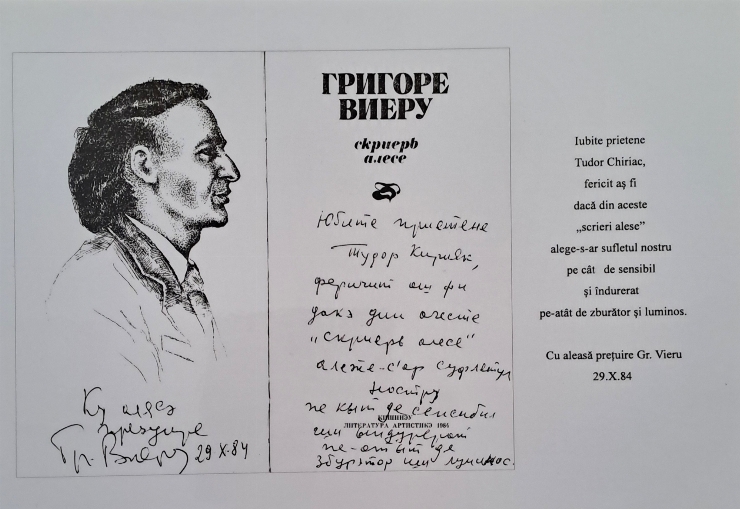 ГРИГОРЕ
ВИЕРУ
скриерь
алесе
Юбите приетене
Тудор Киряк,
феричит аш фи
дакэ дин ачесте
„скриерь алесе"
алеже-с'ар суфлетул
ностру
пе кыт де сенсибил
КИШИНЭУ
ЛИТЕРАТУРА АРТИСТИКЭ 1984
ши ындурерат
пе-атыт де
збурэтор ши луминос.
Ку алясэ
прецуире
Гр. Виеру 29 X·84
Iubite prietene
Tudor Chiriac,
fericit aş fi
dacă din aceste
„scrieri alese”
alege-s-ar sufletul nostru
pe cât de sensibil
şi îndurerat
pe-atât de zburător şi luminos.
Cu aleasă preţuire Gr. Vieru
29.X.84